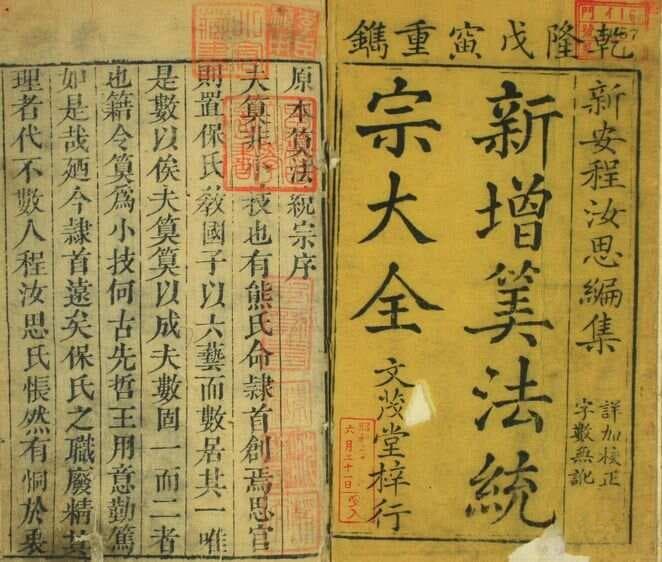 乾隆戊寅重鐫
新安程汝思編集
詳加校正
字數無訛
新增筭法統
宗大全
文茂堂梓行
六月二十日
原本筭法統宗序
夫筭非小技也有熊氏命隸首創焉思官
則置保氏敎國子以六藝而數居其一唯
是數以俟夫筭筭以成夫數固一而二者
也籍令筭爲小技何古先哲王用意勤篤
如是哉廼今隸首遠矣保氏之職廢精其
理者代不數人程汝思氏悵然有恫於衷